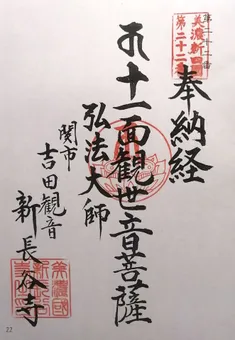 奉納経
十一面観世音菩薩
弘法大師
関市
吉田観音
新長谷寺
美濃新四国
第二十二番
22